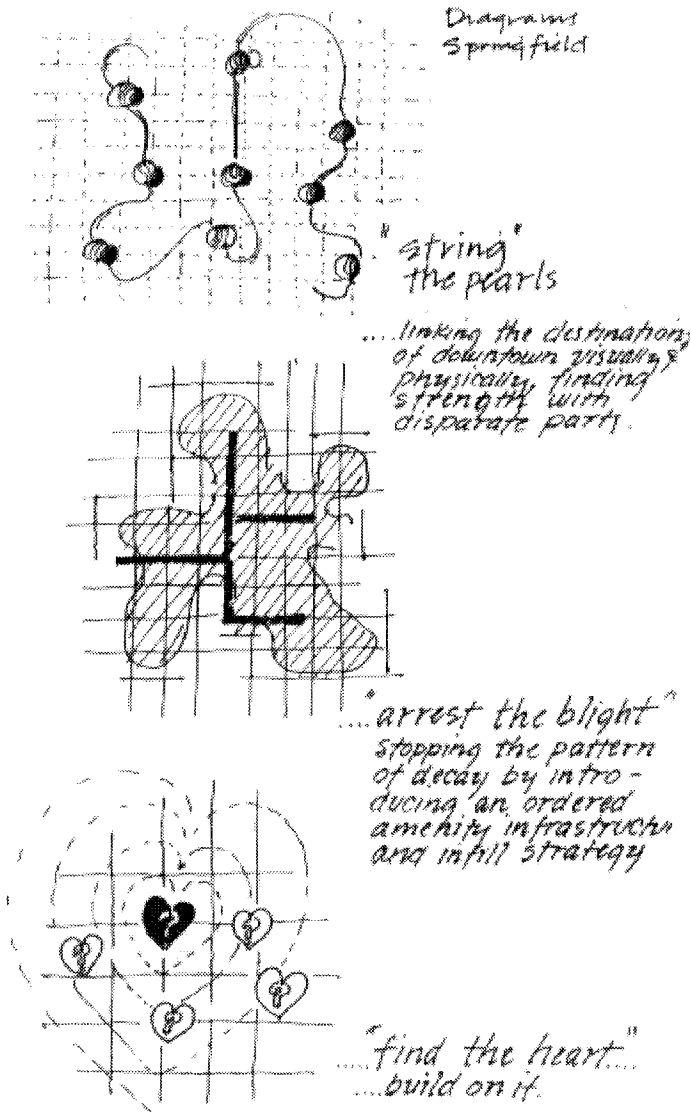 Diagrams
Springfield
"string"
the pearls
....linking the destinations
of downtown visually &
physically, finding
strength with
disparate parts.
...."arrest the blight"
stopping the pattern
of decay by intro-
ducing an ordered
amenity infrastructu
and infill strategy
...."find the heart"....
....build on it.